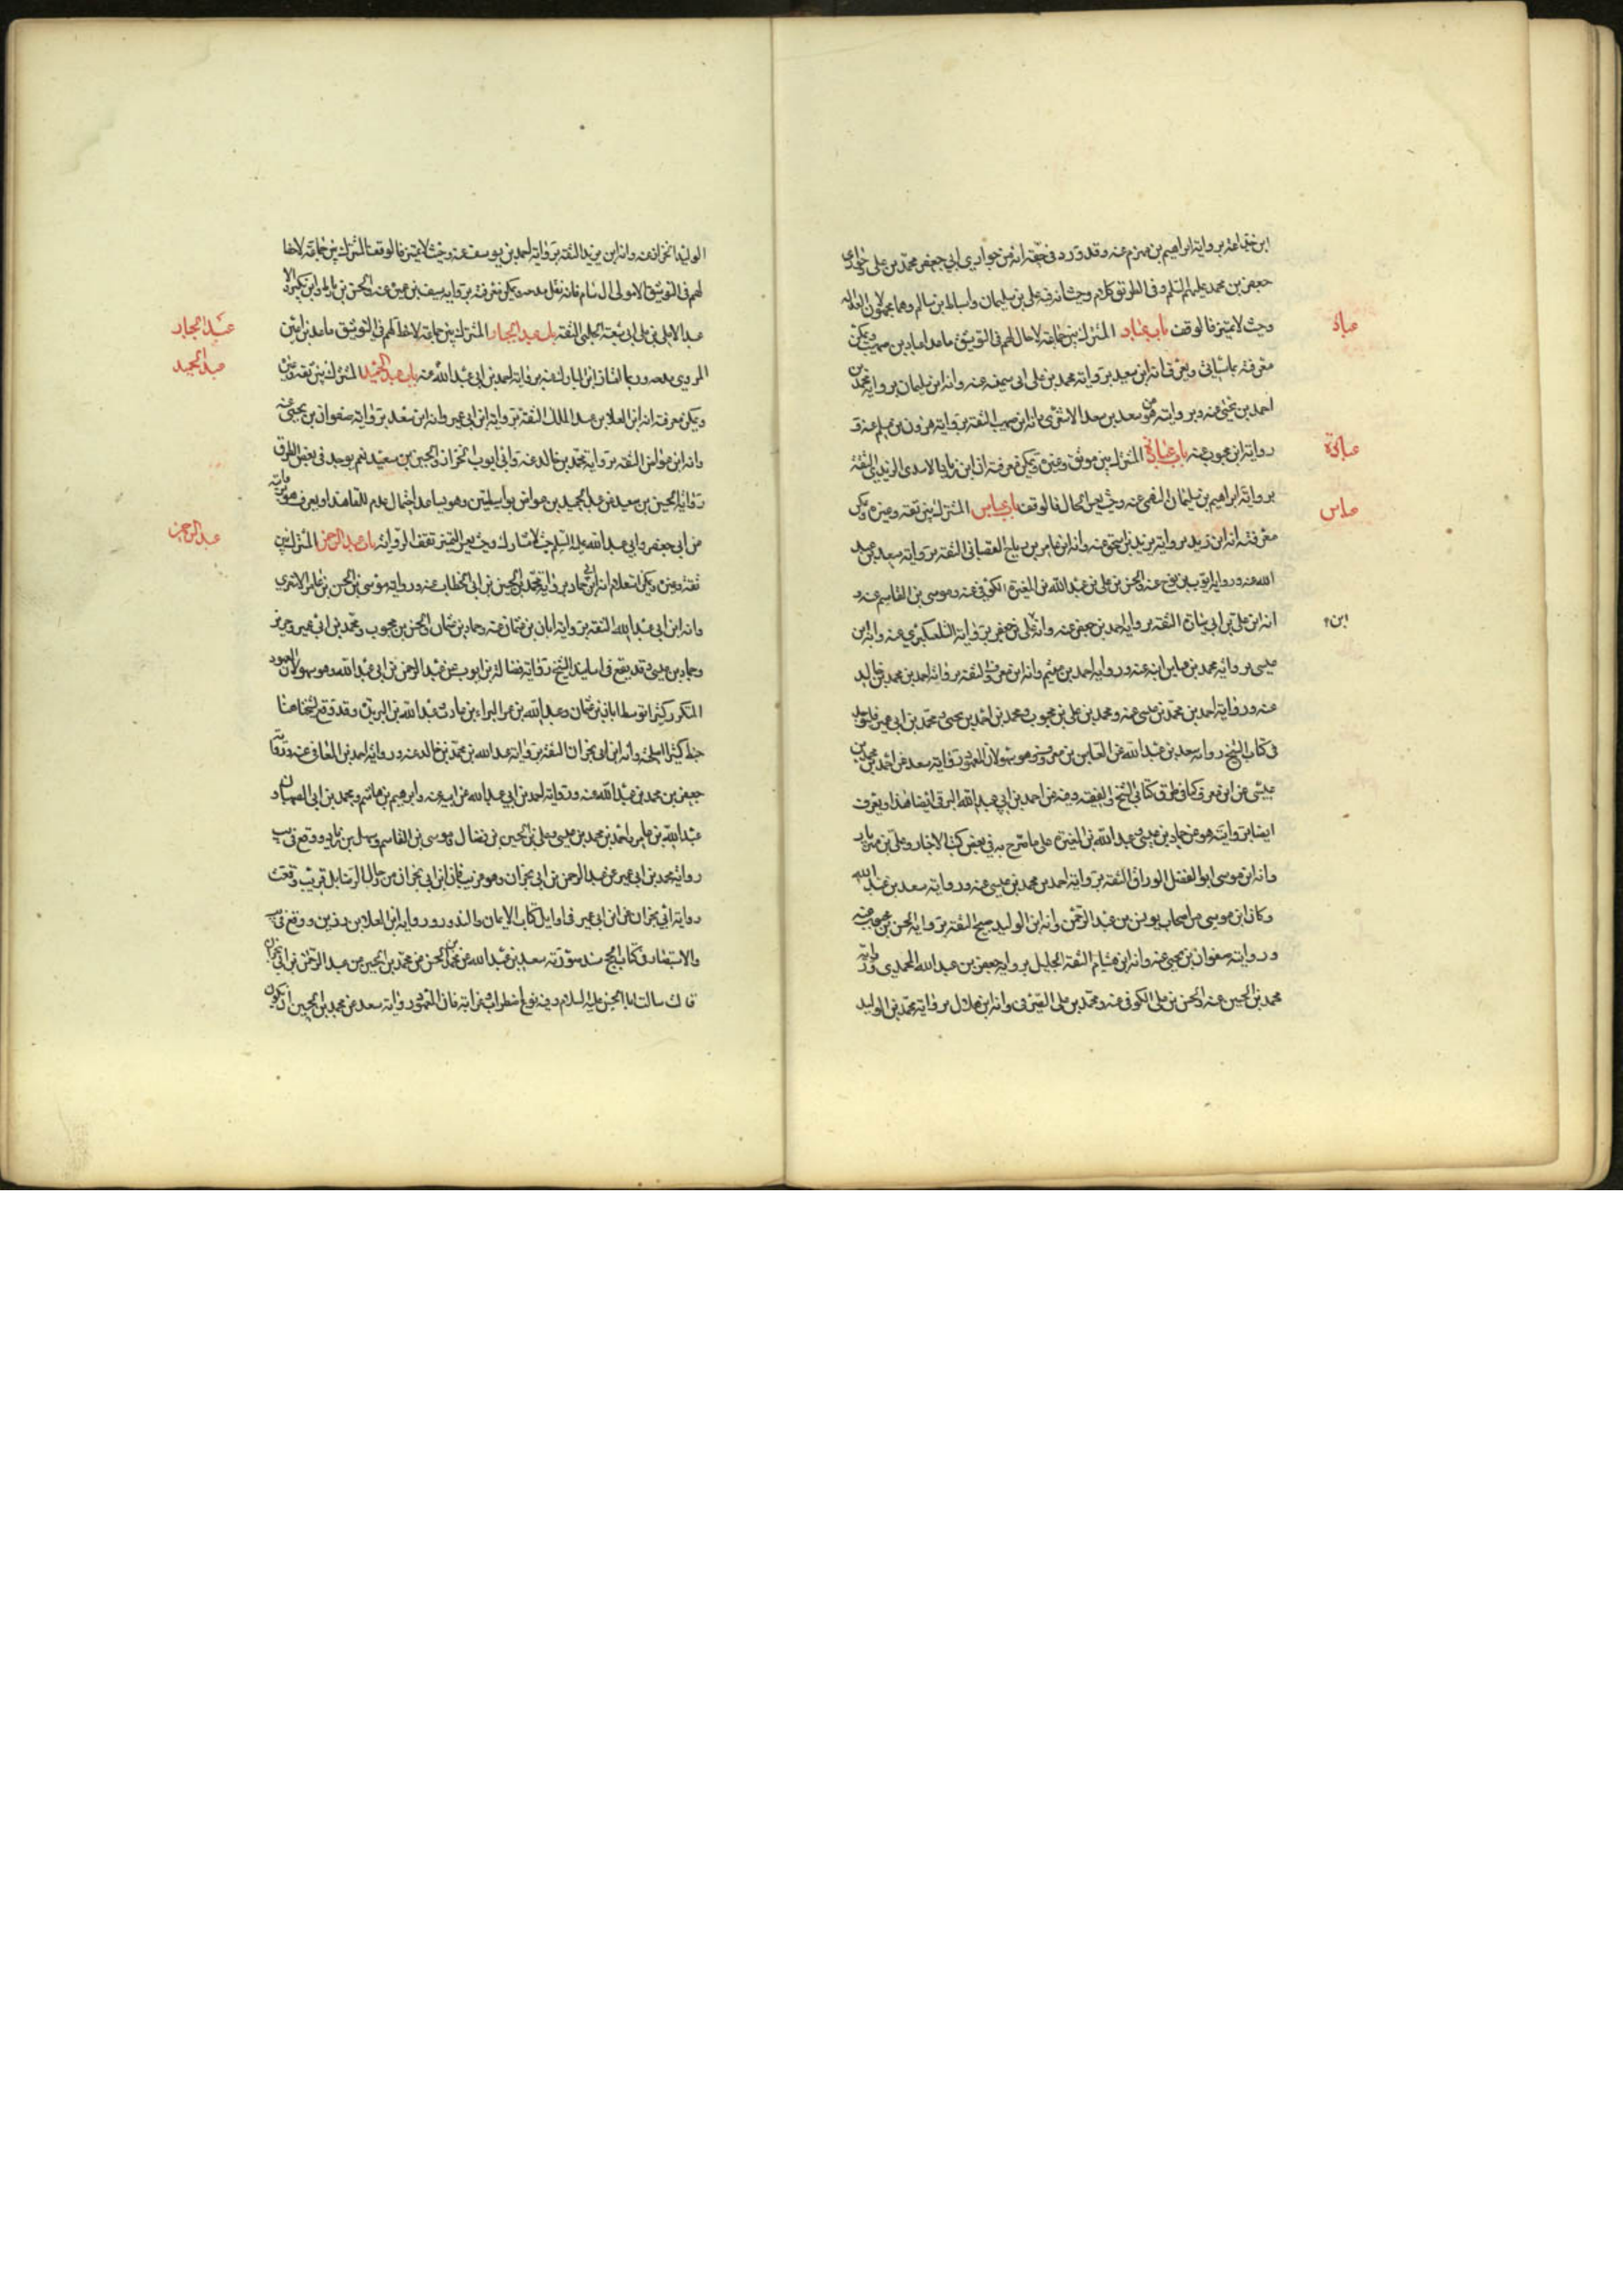 ابن خباعة برواية ابراهيم بن مهزم عنه وقد ورد في حقه انه من حواري ابي جعفر محمد بن علي وحواري
جعفر بن محمد عليهم السلم وفي الطريق كلام وحيث انه فيه علي بن سليمان واسباط بن سالم وهما مجهولان العدالة
وحيث لا تميز فالوقف باب عباد المشترك بين جماعة لا حال لهم في التوثيق ما عدا عباد بن صهيب ويمكن
عباد
معرفته بما سياتي ويعرف انه ابن سعيد برواية محمد بن علي ابي سمينة عنه وانه ابن سليمان برواية محمد بن
احمد بن يحيى عنه وبروايته هو عن سعد بن سعد الاشعري وانه ابن صهيب الثقة برواية هرون بن مسلم عنه و
رواية ابن محبوب عنه باب عبادة المشترك بين موثق وغيره ويمكن معرفة انه ابن زياد الاسدي الزيدي الثقة
عبادة
برواية ابراهيم بن سليمان النهمي عنه وحيث يعسر الحال فالوقف باب عباس المشترك بين ثقة وغيره ويمكن
عباس
معرفته انه ابن يزيد برواية يزيد بن اسحق عنه وانه ابن عامر بن رباح القصباني الثقة برواية سعد بن عبد
الله عنه ورواية ايوب بن نوح عنه والحسن بن علي بن عبد الله بن المغيرة الكوفي عنه وموسى بن القاسم عنه و
انه ابن علي بن ابي سارة الثقة برواية احمد بن جعفر عنه وانه علي بن جعفر برواية التلعكبري عنه وانه ابن
ابن
عيسى برواية محمد بن عباس ابنه عنه ورواية احمد بن ميثم وانه ابن معروف الثقة برواية احمد بن محمد بن خالد
عنه ورواية احمد بن محمد بن عيسى عنه ومحمد بن علي بن محبوب ومحمد بن احمد بن يحيى ومحمد بن ابي عمير
في كتاب الشيخ رواية سعد بن عبد الله عن العباس بن معروف وهو سهو لان المعهود رواية سعد عن احمد بن محمد بن
عيسى عن ابن معروف كما في طرق كتابي الشيخ والفقيه وعنه عن احمد بن ابي عبد الله البرقي ايضا هذا ويعرف
ايضا بروايته هو عن حماد بن عيسى وعبد الله بن المغيرة على ما صرح به في بعض كتب الاخبار وعلي بن مهزيار
وانه ابن موسى ابو الفضل الوراق الثقة برواية احمد بن محمد بن عيسى عنه ورواية سعد بن عبد الله
وكان ابن موسى من اصحاب يونس بن عبد الرحمن وانه ابن الوليد بن صبيح الثقة برواية الحسن بن محبوب عنه
ورواية صفوان بن يحيى عنه وانه ابن هشام الثقة الجليل برواية جعفر بن عبد الله المحمدي ورواية
محمد بن الحسين عنه والحسن بن علي الكوفي عنه ومحمد بن علي الصيرفي وانه ابن هلال برواية محمد بن الوليد
الوليد الخزاز عنه وانه ابن يزيد الثقة برواية احمد بن يوسف عنه وحيث لا تميز فالوقف المشترك بين جماعة لا حظ
لهم في التوثيق الا مولى ال سام فانه نقل مدحه ويمكن معرفته برواية سيف بن عميرة عنه والحسن بن وابن بكير الا
عبد الاعلى بن علي بن ابي شعبة الحلبي الثقة باب عبد الجبار المشترك بين جماعة لا حظ لهم في التوثيق ما عدا
عبد الجبار
المروي مدحه ورعا الشاذ ابن المبارك عنه برواية احمد بن ابي عبد الله عنه باب عبد الحميد المشترك بين ثقة وغيره
عبد الحميد
ويمكن معرفة انه ابن العلا بن عبد الملك الثقة برواية ابن ابي عمير وانه ابن سعد برواية صفوان بن يحيى عنه
وانه ابن عواض الثقة برواية محمد بن خالد عنه وابي ايوب الخزاز والحسين بن سعيد نعم يوجد في بعض الطرق
رواية الحسين بن سعيد عن عبد الحميد بن عواض بواسطتين وهو يساعد احتمال عدم اللقا هذا ويعرف هو بروايته
عن ابي جعفر وابي عبد الله عليه السلم حيث لا مشارك وحيث يعسر التميز تقف الرواية باب عبد الرحمن المشترك بين
عبد الرحمن
ثقة وغيره ويمكن استعلام انه ابن ابي حماد برواية محمد بن الحسين بن ابي الخطاب عنه ورواية موسى بن الحسن بن عامر الاشعري
وانه ابن ابي عبد الله الثقة برواية ابان بن عثمان عنه وحماد بن عثمان والحسن بن محبوب ومحمد بن ابي عمير وحريز
وحماد بن عيسى وقد يقع في اسانيد الشيخ رواية فضالة بن ايوب عن عبد الرحمن بن ابي عبد الله وهو سهو لان المعهود
المتكرر كثيرا توسط ابان بن عثمان وعبد الله بن البراء بن عازب وقد وقع للشيخ هنا
خبط كثير وانه ابن ابي نجران الثقة برواية عبد الله بن محمد بن خالد عنه ورواية احمد بن المعافى عنه ورواية
جعفر بن محمد بن عبد الله عنه ورواية احمد بن ابي عبد الله عن ابيه عنه وابرهيم بن هاشم ومحمد بن ابي الصهبان و
عبد الله بن عامر واحمد بن محمد بن عيسى وعلي بن الحسين بن فضال وموسى بن القاسم وسهل بن زياد ووقع في يب
رواية محمد بن ابي عمير عن عبد الرحمن بن ابي نجران وهو غريب فان ابن ابي نجران من رجال الرضا بل قريب وقعت
رواية ابي نجران عن ابن ابي عمير في اوايل كتاب الايمان والنذور ورواية ابن العلاء بن رزين ووقع في يب
والاستبصار في كتاب الحج سند صورته سعد بن عبد الله عن محمد بن الحسن عن محمد بن الحسين عن عبد الرحمن بن ابي نجران
قال سالت ابا الحسن عليه السلام وفيه نوع اضطراب غرابة فان المعهود رواية سعد عن محمد بن الحسين ان تكون